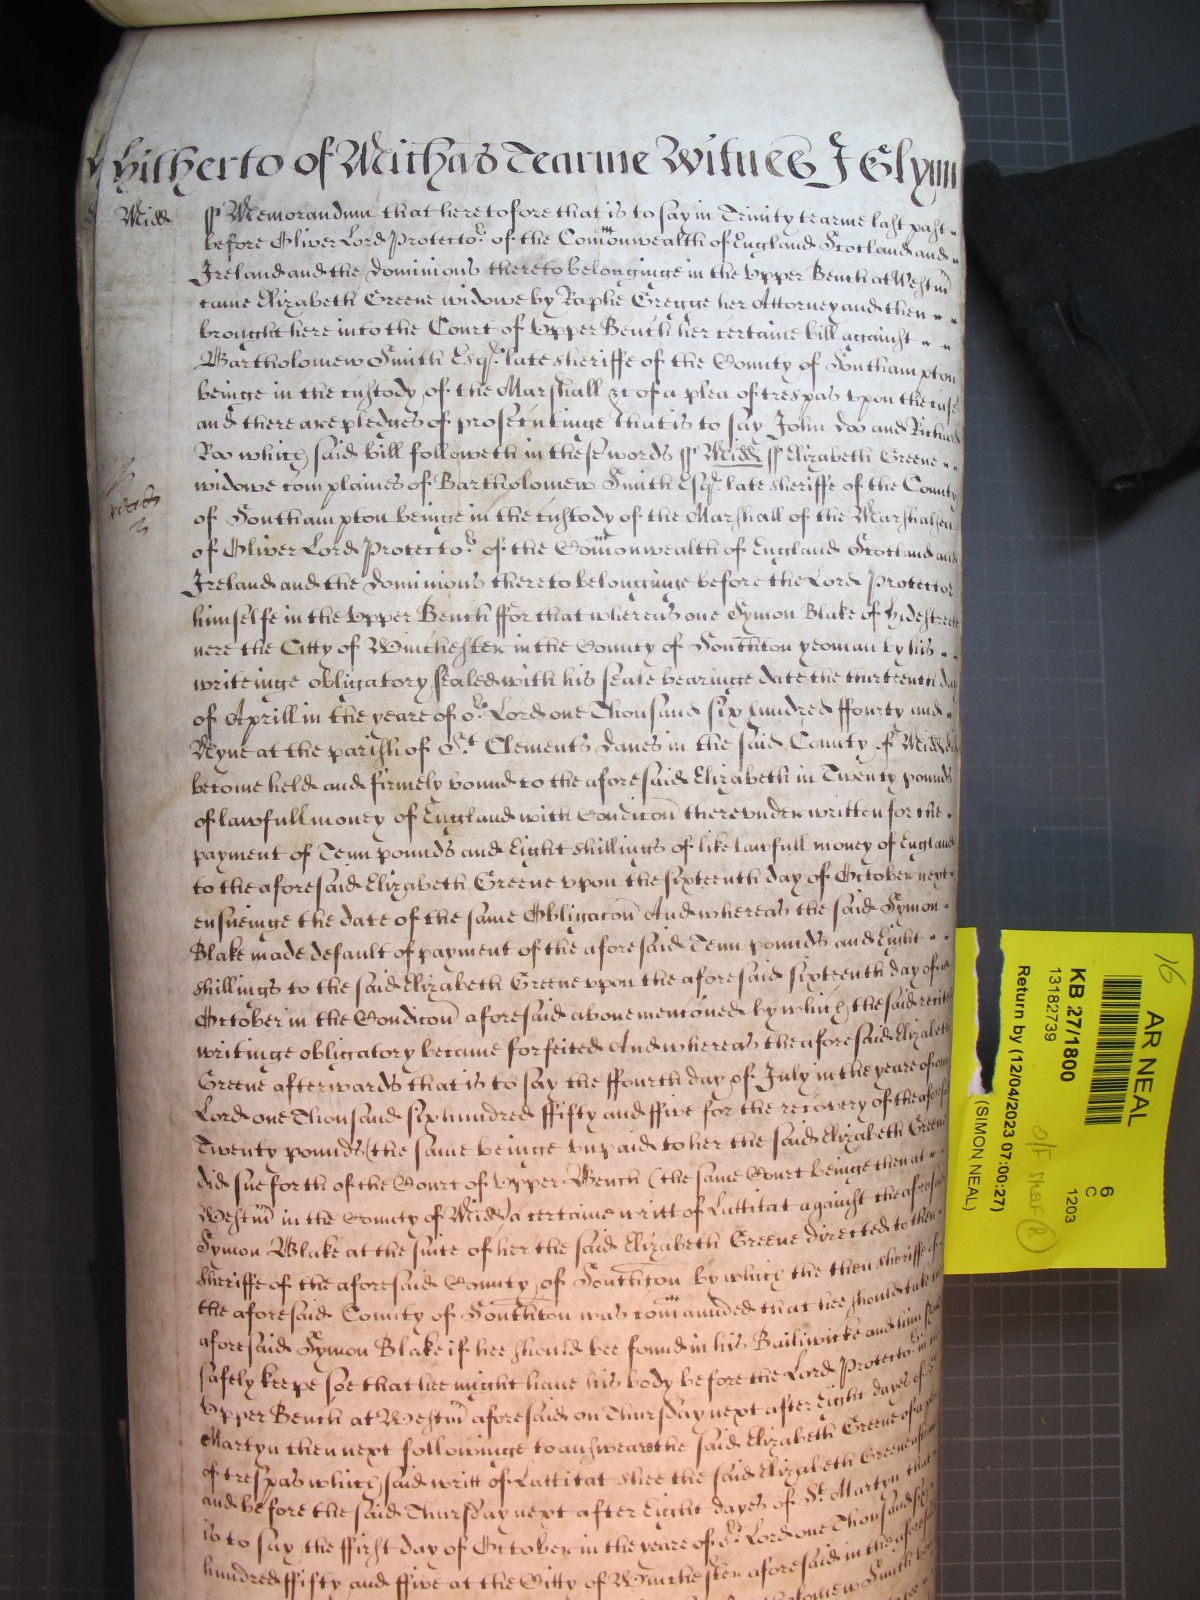 hitherto of Michas Tearme Witnes J Glynn
Midd ss Memorandum that heretofore that is to say in Trinity tearme last past
before Oliver Lord Protector of the Comonwealth of England Scotland and
Ireland and the Dominions thereto belonginge in the Upper Bench at Westm
came Elizabeth Greene widowe by Raphe Gregge her Attorney and then
brought here into the Court of Upper Bench her certaine bill against
Bartholomew Smith Esqr. late sheriffe of the County of Southampton
beinge in the custody of the Marshall &c of a plea of trespas upon the case
and there are pledges of prosecutinge that is to say John Doo and Richard
Roo which said bill followeth in these words ss Midd ss Elizabeth Greene
widowe complaines of Bartholomew Smith Esqr. late sheriffe of the County
of Southampton beinge in the custody of the Marshall of the Marshalsey
of Oliver Lord Protector of the Comonwealth of England Scotland and
Ireland and the Dominions thereto belonginge before the Lord Protector
himselfe in the Upper Bench ffor that whereas one Symon Blake of Hidestreete
nere the Citty of Winchester in the County of Southton yeoman by his
writeinge obligatory sealed with his seale bearinge date the thirteenth day
of Aprill in the yeare of or Lord one Thousand six hundred ffourty and
Neyne at the parish of St Clements Danes in the said County of Midd did
become held and firmely bound to the aforesaid Elizabeth in Twenty pounds
of lawfull money of England with Condicon thereunder written for the
payment of Tenn pounds and Eight shillings of like lawfull money of England
to the aforesaid Elizabeth Greene upon the sixteenth day of October next
ensueinge the date of the same Obligacon And whereas the said Symon
Blake made default of payment of the aforesaid Tenn pounds and Eight
shillings to the said Elizabeth Greene upon the aforesaid sixteenth day of
October in the Condicon aforesaid above mentioned by which the said recited
writinge obligatory became forfeited And whereas the aforesaid Elizabeth
Greene afterwards that is to say the ffourth day of July in the yeare of our
Lord one Thousand six hundred ffifty and ffive for the recovery of the aforesaid
Twenty pounds (the same beinge unpaid to her the said Elizabeth Greene
did sue forth of the Court of Upper Bench (the same Court beinge then at
Westm in the County of Midd) a certaine writt of Lattitat against the aforesaid
Symon Blake at the suite of her the said Elizabeth Greene directed to then
Sheriffe of the aforesaid County of Southton by which the then sheriffe of
the aforesaid County of Southton was comaunded that hee should take
aforesaid Symon Blake if hee should bee found in his Bailiwicke and him
safely keepe soe that hee might have his body before the Lord Protector in
Upper Bench at Westm aforesaid on Thursday next after Eight dayes of St
Martyn then next followinge to answeare the said Elizabeth Greene of a plea
of trespas which said writt of Lattitat shee the said Elizabeth Greene
and before the said Thursday next after Eight dayes of St Martyn that
is to say the ffirst day of October in the yeare of or Lord one Thousand six
hundred ffifty and ffive at the Citty of Winchester aforesaid in the aforesaid
16
AR NEAL
KB 27/1800
13182739
Return by (12/04/2023 07:00:27)
(SIMON NEAL)
6
C
1203